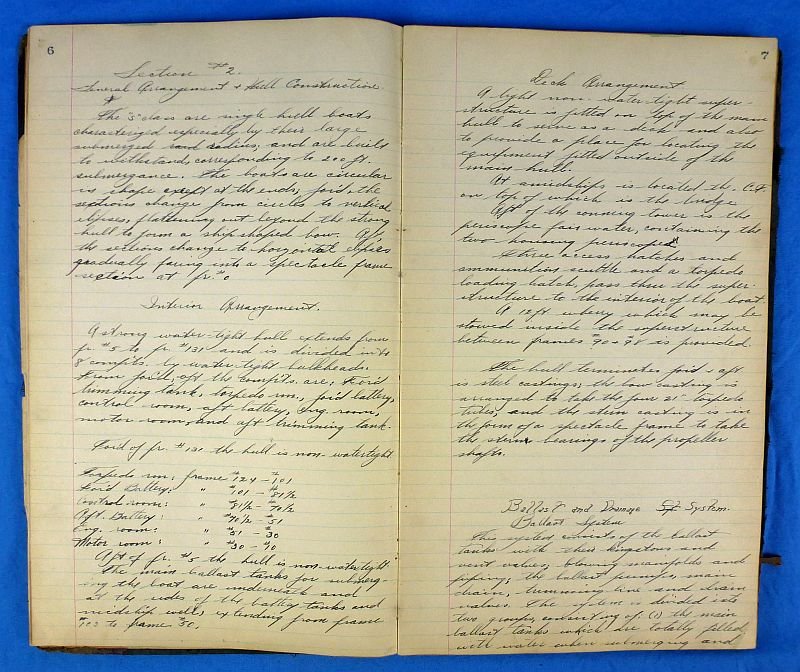 6
Section #2.
General Arrangement & Hull Construction.
The "S" class are single hull boats
characterized especially by their large
submerged radius, and are built
to withstand corresponding to 200 ft.
submergence. The boats are circular
in shape except at the ends; for'd, the
sections change from circles to vertical
elipses, flattening out beyond the strong
hull to form a ship shaped bow. Aft
the sections change to horizontal elipses
gradually faring into a spectacle frame
section at fr. #0
Interior Arrangement.
A strong water-tight hull extends from
fr #5 to fr #131 and is divided into
8 compts. by water-tight bulkheads.
From for'd, aft the compts. are; For'd
trimming tank, torpedo rm., for'd battery,
control room, aft battery, Eng. room,
motor room, and aft trimming tank.
For'd of fr. #130 the hull is non-watertight
Torpedo rm; frame #124 - #101
For'd Battery: " #101 - #81 1/2
Control room: " #81 1/2 - #70 1/2
Aft. Battery: " #70 1/2 - #51
Eng. room: " #51 - #30
Motor room: " #30 - #10
Aft of fr. #5 the hull is non-watertight
The main ballast tanks for submerg-
ing the boat are underneath and
at the sides of the battery tanks and
midship well, extending from frame
#103 to frame #30.
7
Deck Arrangement
A light non-watertight super-
structure is fitted on top of the main
hull to serve as a deck and also
to provide a place for locating the
equipment fitted outside of the
main hull.
At amidships is located the C.T.
on top of which is the bridge
Aft of the conning tower is the
periscope fairwater, containing the
two housing periscopes
Three access hatches and
ammunition scuttle and a torpedo
loading hatch, pass thru the super-
structure to the interior of the boat.
A 12 ft wherry which may be
stowed inside the superstructure
between frames #90 & 98 is provided.
The hull terminates for'd & aft
in steel castings; the bow casting is
arranged to take the four 21" torpedo
tubes, and the stern casting is in
the form of a spectacle frame to take
the stern bearings of the propeller
shafts.
Ballast and Drainage System.
Ballast System
This system consists of the ballast
tanks with their kingstons and
vent valves, blowing manifolds and
piping; the ballast pumps, main
drain, trimming line and drain
valves. The system is divided into
two groups, consisting of: (1) the main
ballast tanks which are totally filled
with water when submerging and